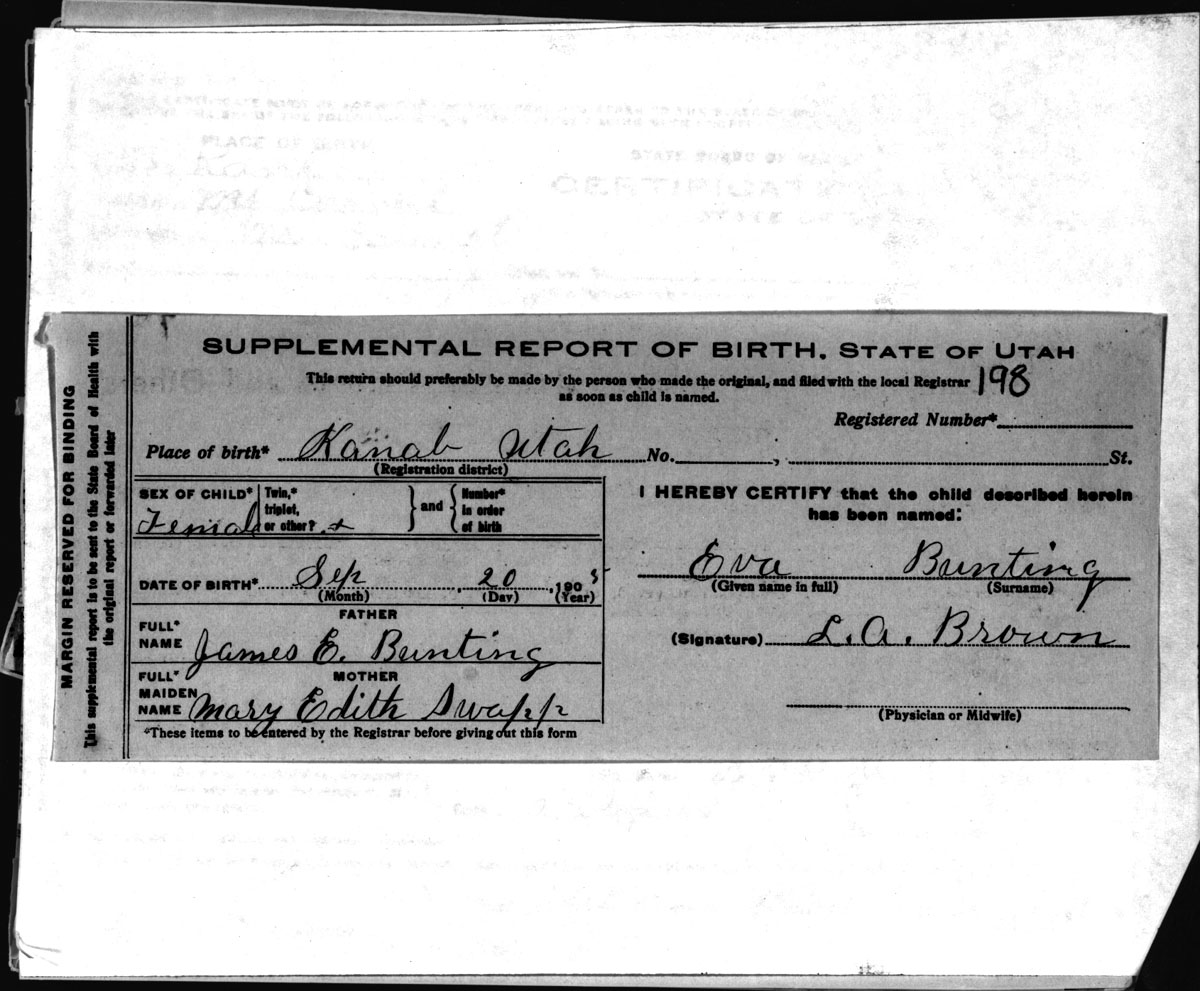 SUPPLEMENTAL REPORT OF BIRTH. STATE OF UTAH
This return should preferably be made by the person who made the original, and filed with the local Registrar
as soon as child is named.
198
Registered Number*
Place of birth* Kanab Utah No. , St.
(Registration district)
SEX OF CHILD* Female
Twin,* triplet, or other?
and
Number* in order of birth
DATE OF BIRTH* Sep 20, 190
(Month) (Day) (Year)
FATHER
FULL* NAME James E. Bunting
MOTHER
FULL* MAIDEN NAME Mary Edith Swapp
*These items to be entered by the Registrar before giving out this form
I HEREBY CERTIFY that the child described herein
has been named:
Eva Bunting
(Given name in full) (Surname)
(Signature) L.A. Brown
(Physician or Midwife)
MARGIN RESERVED FOR BINDING
This supplemental report is to be sent to the State Board of Health with
the original report or forwarded later